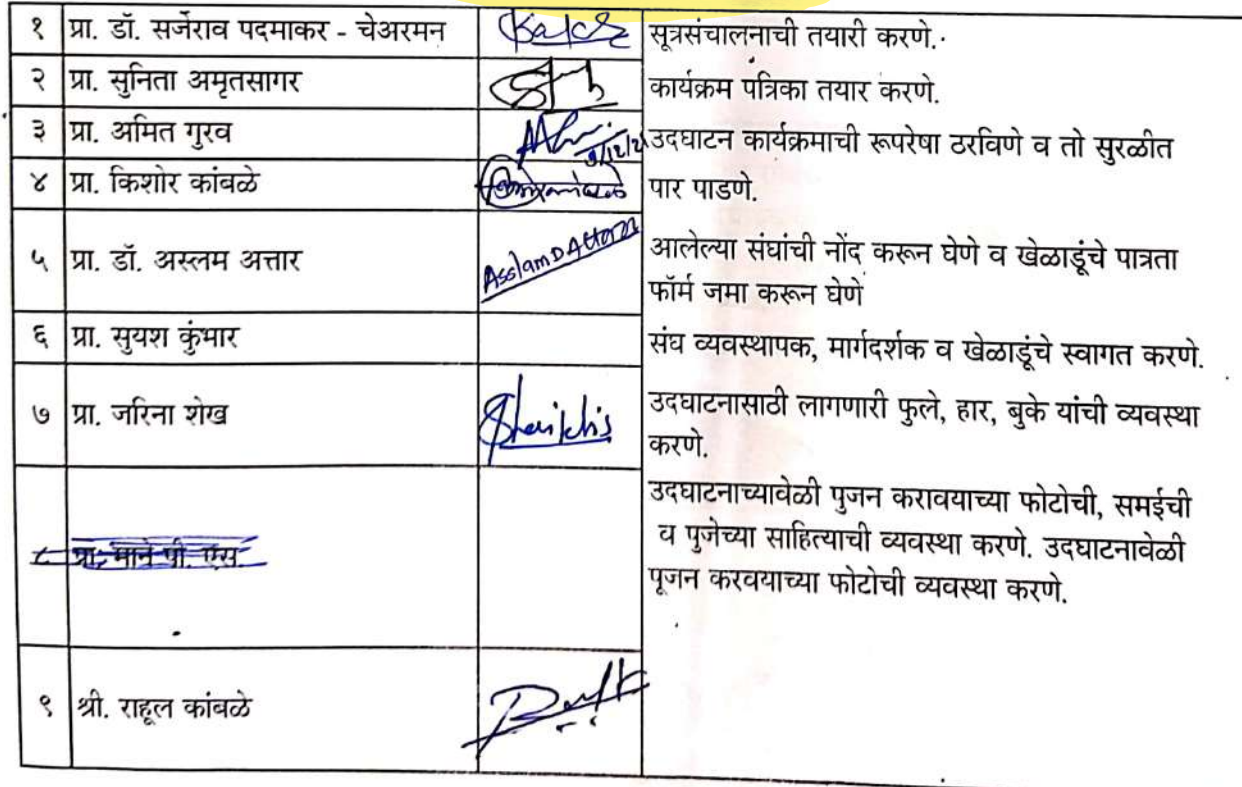 १ प्रा. डॉ. सर्जेराव पदमाकर - चेअरमन
सूत्रसंचालनाची तयारी करणे.
२ प्रा. सुनिता अमृतसागर
कार्यक्रम पत्रिका तयार करणे.
३ प्रा. अमित गुरव
उदघाटन कार्यक्रमाची रूपरेषा ठरविणे व तो सुरळीत
४ प्रा. किशोर कांबळे
पार पाडणे.
५ प्रा. डॉ. अस्लम अत्तार
Asslam D Attar
आलेल्या संघांची नोंद करून घेणे व खेळाडूंचे पात्रता
फॉर्म जमा करून घेणे
६ प्रा. सुयश कुंभार
संघ व्यवस्थापक, मार्गदर्शक व खेळाडूंचे स्वागत करणे.
७ प्रा. जरिना शेख
उदघाटनासाठी लागणारी फुले, हार, बुके यांची व्यवस्था
करणे.
८ प्रा. माने पी. एस.
उदघाटनाच्यावेळी पुजन करावयाच्या फोटोची, समईची
व पुजेच्या साहित्याची व्यवस्था करणे. उदघाटनावेळी
पूजन करवयाच्या फोटोची व्यवस्था करणे.
९ श्री. राहूल कांबळे